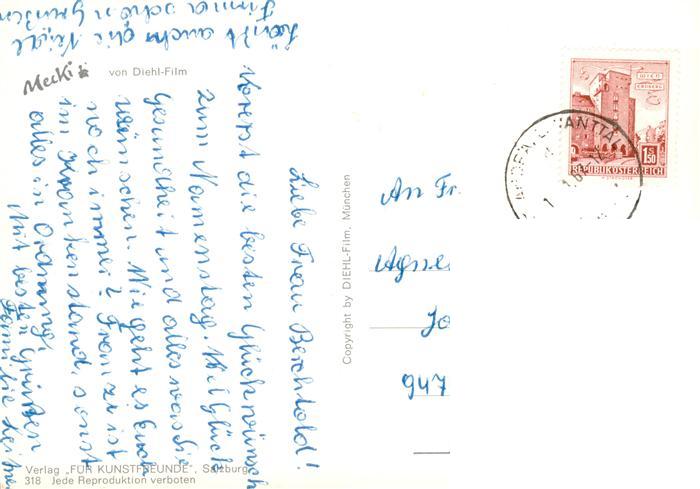 Mecki
von Diehl-Film
Liebe Frau Berchtold!
Vorerst die besten Glückwünsch
zum Namenstag. Viel Glück
Gesundheit und alles was Sie
wünschen. Wie geht es Euch
noch immer? Franzi ist
im Krankenstand, sonst
alles in Ordnung.
Mit besten Grüßen
Familie
Läßt auch die
Firma schön Grüßen
Verlag „FÜR KUNSTFREUNDE", Salzburg
318 Jede Reproduktion verboten
Copyright by DIEHL-Film, München
An Fr.
Agne
Jo
947
WIEN
ERDBERG
S
1.50
REPUBLIK ÖSTERREICH